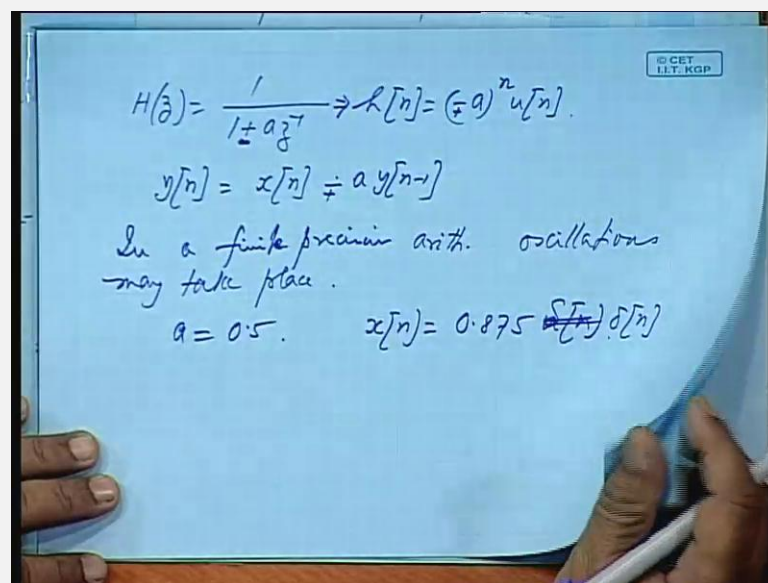 © CET
I.I.T. KGP
H(z) = 1 / (1 ± az⁻¹) ⇒ h[n] = (∓a)ⁿ u[n].
y[n] = x[n] ∓ a y[n-1]
In a finite precision arith. oscillations
may take place.
a = 0.5. x[n] = 0.875 δ[n]